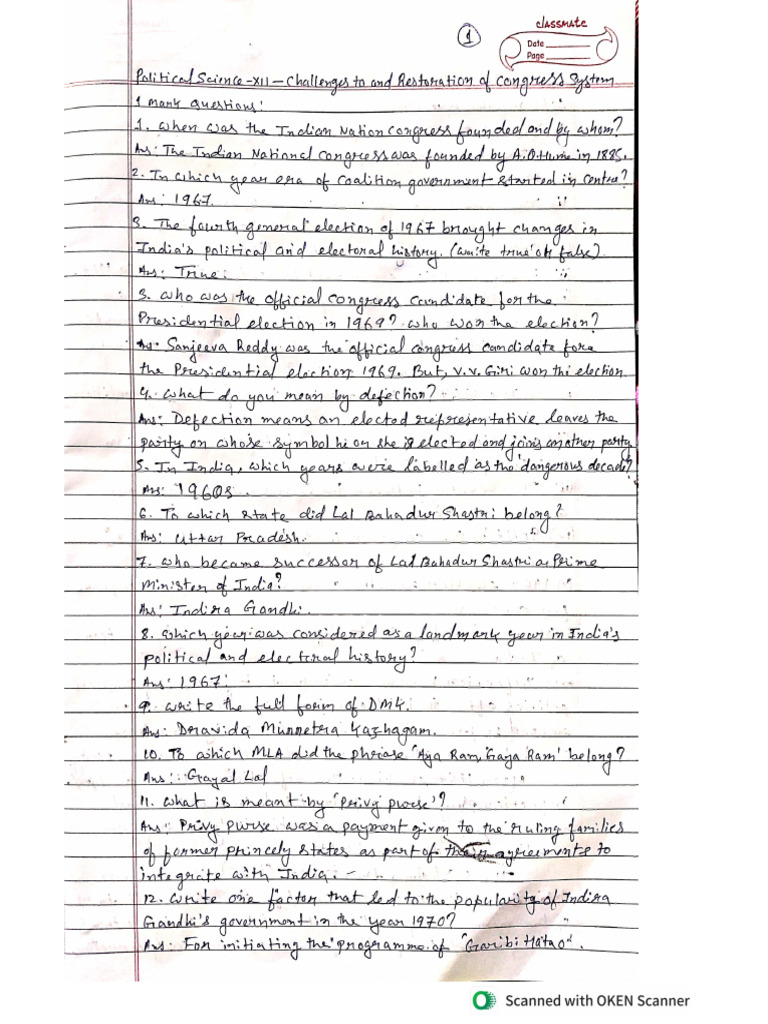 1
classmate
Date
Page
Political Science-XII-Challenges to and Restoration of congress System
1 mark questions:
1. When was the Indian Nation congress founded and by whom?
Ans: The Indian National congress was founded by A.O.Hume in 1885.
2. In which year era of coalition government started in centre?
Ans: 1967.
3. The fourth general election of 1967 brought changes in
India's political and electoral history. (write true or false)
Ans: True.
3. Who was the official congress candidate for the
Presidential election in 1969? who won the election?
Ans: Sanjeeva Reddy was the official congress candidate for
the Presidential election 1969. But, V.V. Giri won the election
4. What do you mean by defection?
Ans: Defection means an elected representative leaves the
party on whose symbol he or she is elected and joins another party
5. In India, which years were labelled as the 'dangerous decade'?
Ans: 1960s.
6. To which state did Lal Bahadur Shastri belong?
Ans: Uttar Pradesh.
7. Who became successor of Lal Bahadur Shastri as Prime
Minister of India?
Ans: Indira Gandhi.
8. Which year was considered as a landmark year in India's
political and electoral history?
Ans: 1967.
9. Write the full form of DMK.
Ans: Dravida Munnetra Kazhagam.
10. To which MLA did the phrase 'Aya Ram, Gaya Ram' belong?
Ans: Gayal Lal
11. What is meant by 'privy purse'?
Ans: Privy purse was a payment given to the ruling families
of former princely states as part of their agreements to
integrate with India.
12. Write one factor that led to the popularity of Indira
Gandhi's government in the year 1970?
Ans: For initiating the programme of "Garibi Hatao".
Scanned with OKEN Scanner